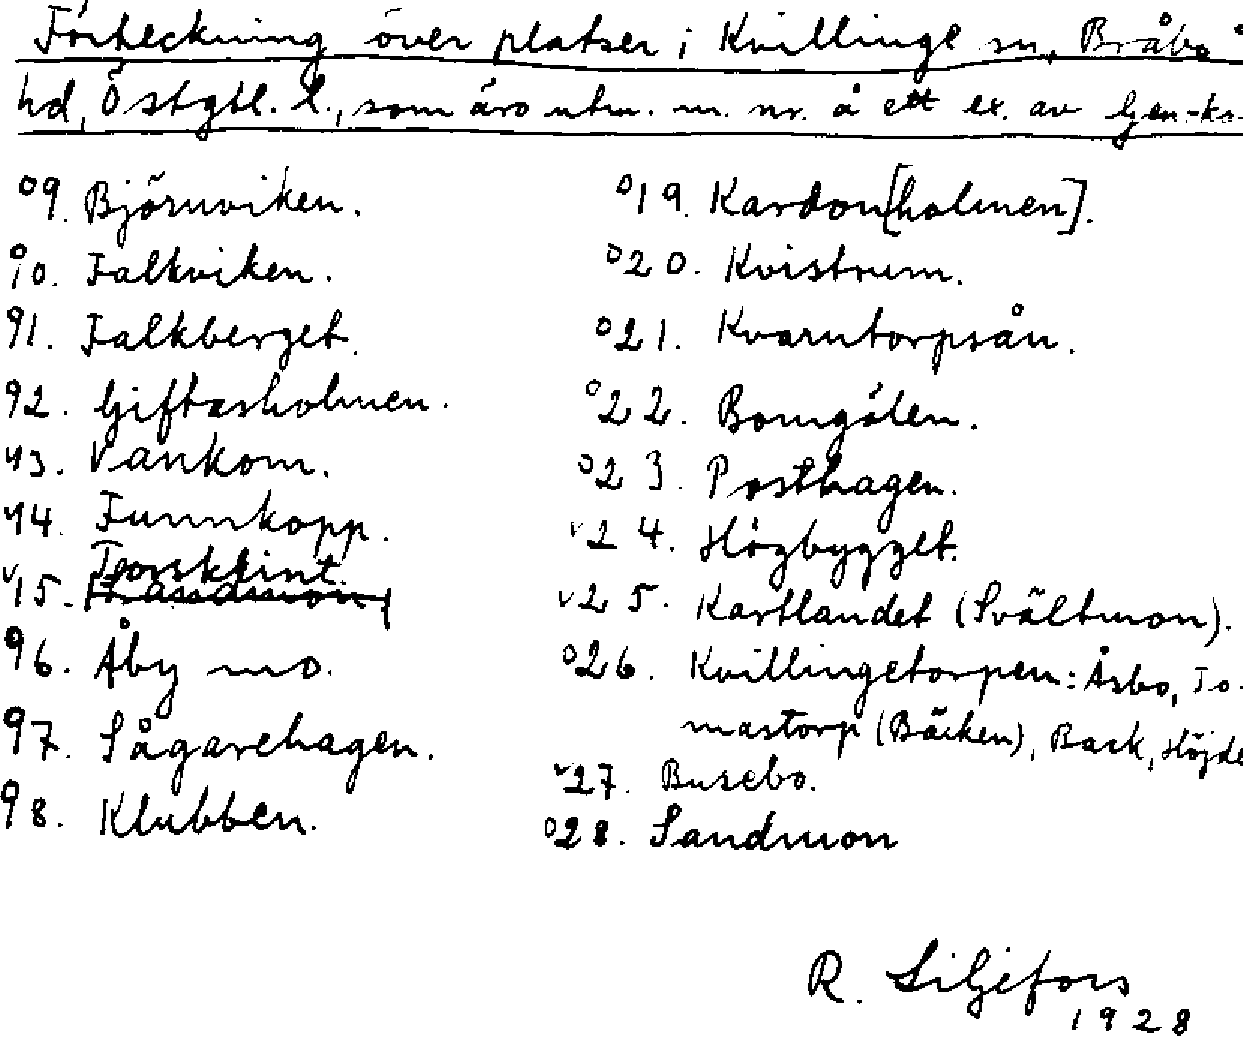 Förteckning över platser i Kvillinge sn, Bråbo
hd, Östgtl. l., som äro utm. m. nr. å ett ex. av Gen-ka-
9. Björnviken.
10. Falkviken.
11. Falkberget.
12. Giftasholmen.
13. Vankom.
14. Funnkopp.
Torsklint.
15. Sandmon
16. Åby mo.
17. Sågarehagen.
18. Klubben.
19. Kardon[holmen].
20. Kvistrum.
21. Kvarntorpsån.
22. Bomgölen.
23. Posthagen.
24. Högbygget.
25. Kartlandet (Svältmon).
26. Kvillingetorpen: Åsbo, To-
mastorp (Bäcken), Back, Höjde
27. Busebo.
28. Sandmon
R. Liljefors
1928